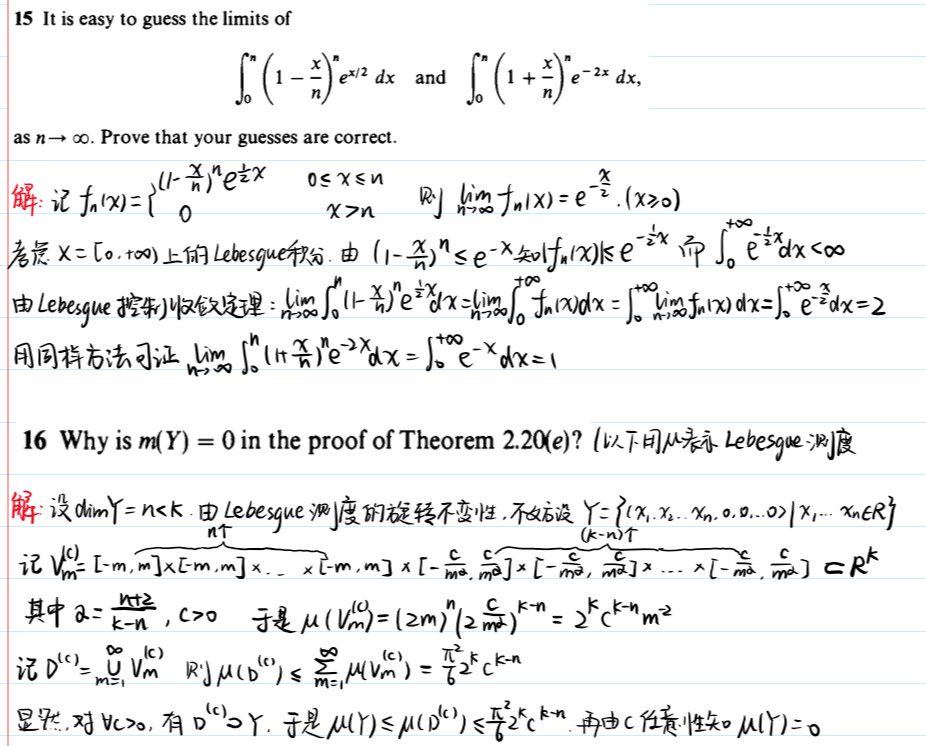 15 It is easy to guess the limits of
∫₀ⁿ (1 − x/n)ⁿ e^{x/2} dx and ∫₀ⁿ (1 + x/n)ⁿ e^{−2x} dx,
as n → ∞. Prove that your guesses are correct.
解: 记 fₙ(x) = { (1−x/n)ⁿ e^{½x} 0≤x≤n ; 0 x>n 则 lim_{n→∞} fₙ(x) = e^{−x/2}. (x≥0)
考虑 X=[0,+∞) 上的 Lebesgue 积分. 由 (1−x/n)ⁿ ≤ e^{−x} 知 |fₙ(x)| ≤ e^{−½x} 而 ∫₀^{+∞} e^{−½x} dx < ∞
由 Lebesgue 控制收敛定理: lim_{n→∞} ∫₀ⁿ (1−x/n)ⁿ e^{½x} dx = lim_{n→∞} ∫₀^{+∞} fₙ(x) dx = ∫₀^{+∞} lim_{n→∞} fₙ(x) dx = ∫₀^{+∞} e^{−x/2} dx = 2
用同样方法可证 lim_{n→∞} ∫₀ⁿ (1+x/n)ⁿ e^{−2x} dx = ∫₀^{+∞} e^{−x} dx = 1
16 Why is m(Y) = 0 in the proof of Theorem 2.20(e)? (以下用μ表示 Lebesgue 测度
解: 设 dimY = n<k. 由 Lebesgue 测度的旋转不变性, 不妨设 Y = {(x₁, x₂ … xₙ, 0, 0, … 0) | x₁, … xₙ∈R}
n个 (k−n)个
记 Vₘ^{(c)} = [−m, m]×[−m, m]×…×[−m, m] × [−c/m^α, c/m^α]×[−c/m^α, c/m^α]×…×[−c/m^α, c/m^α] ⊂ R^k
其中 α = (n+2)/(k−n), c>0 于是 μ(Vₘ^{(c)}) = (2m)ⁿ (2 c/m^α)^{k−n} = 2^k c^{k−n} m^{−2}
记 D^{(c)} = ⋃_{m=1}^{∞} Vₘ^{(c)} 则 μ(D^{(c)}) ≤ Σ_{m=1}^{∞} μ(Vₘ^{(c)}) = π²/6 2^k c^{k−n}
显然, 对 ∀c>0, 有 D^{(c)} ⊃ Y, 于是 μ(Y) ≤ μ(D^{(c)}) ≤ π²/6 2^k c^{k−n}. 再由 c 任意性知 μ(Y) = 0